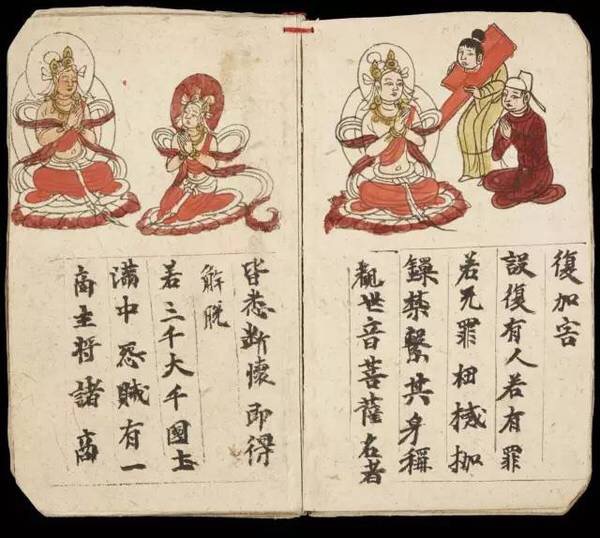 復加害
設復有人若有罪
若无罪杻械枷
鏁禁繫其身稱
觀世音菩薩名者
皆悉斷懷即得
解脱
若三千大千國土
滿中怨賊有一
商主将諸商